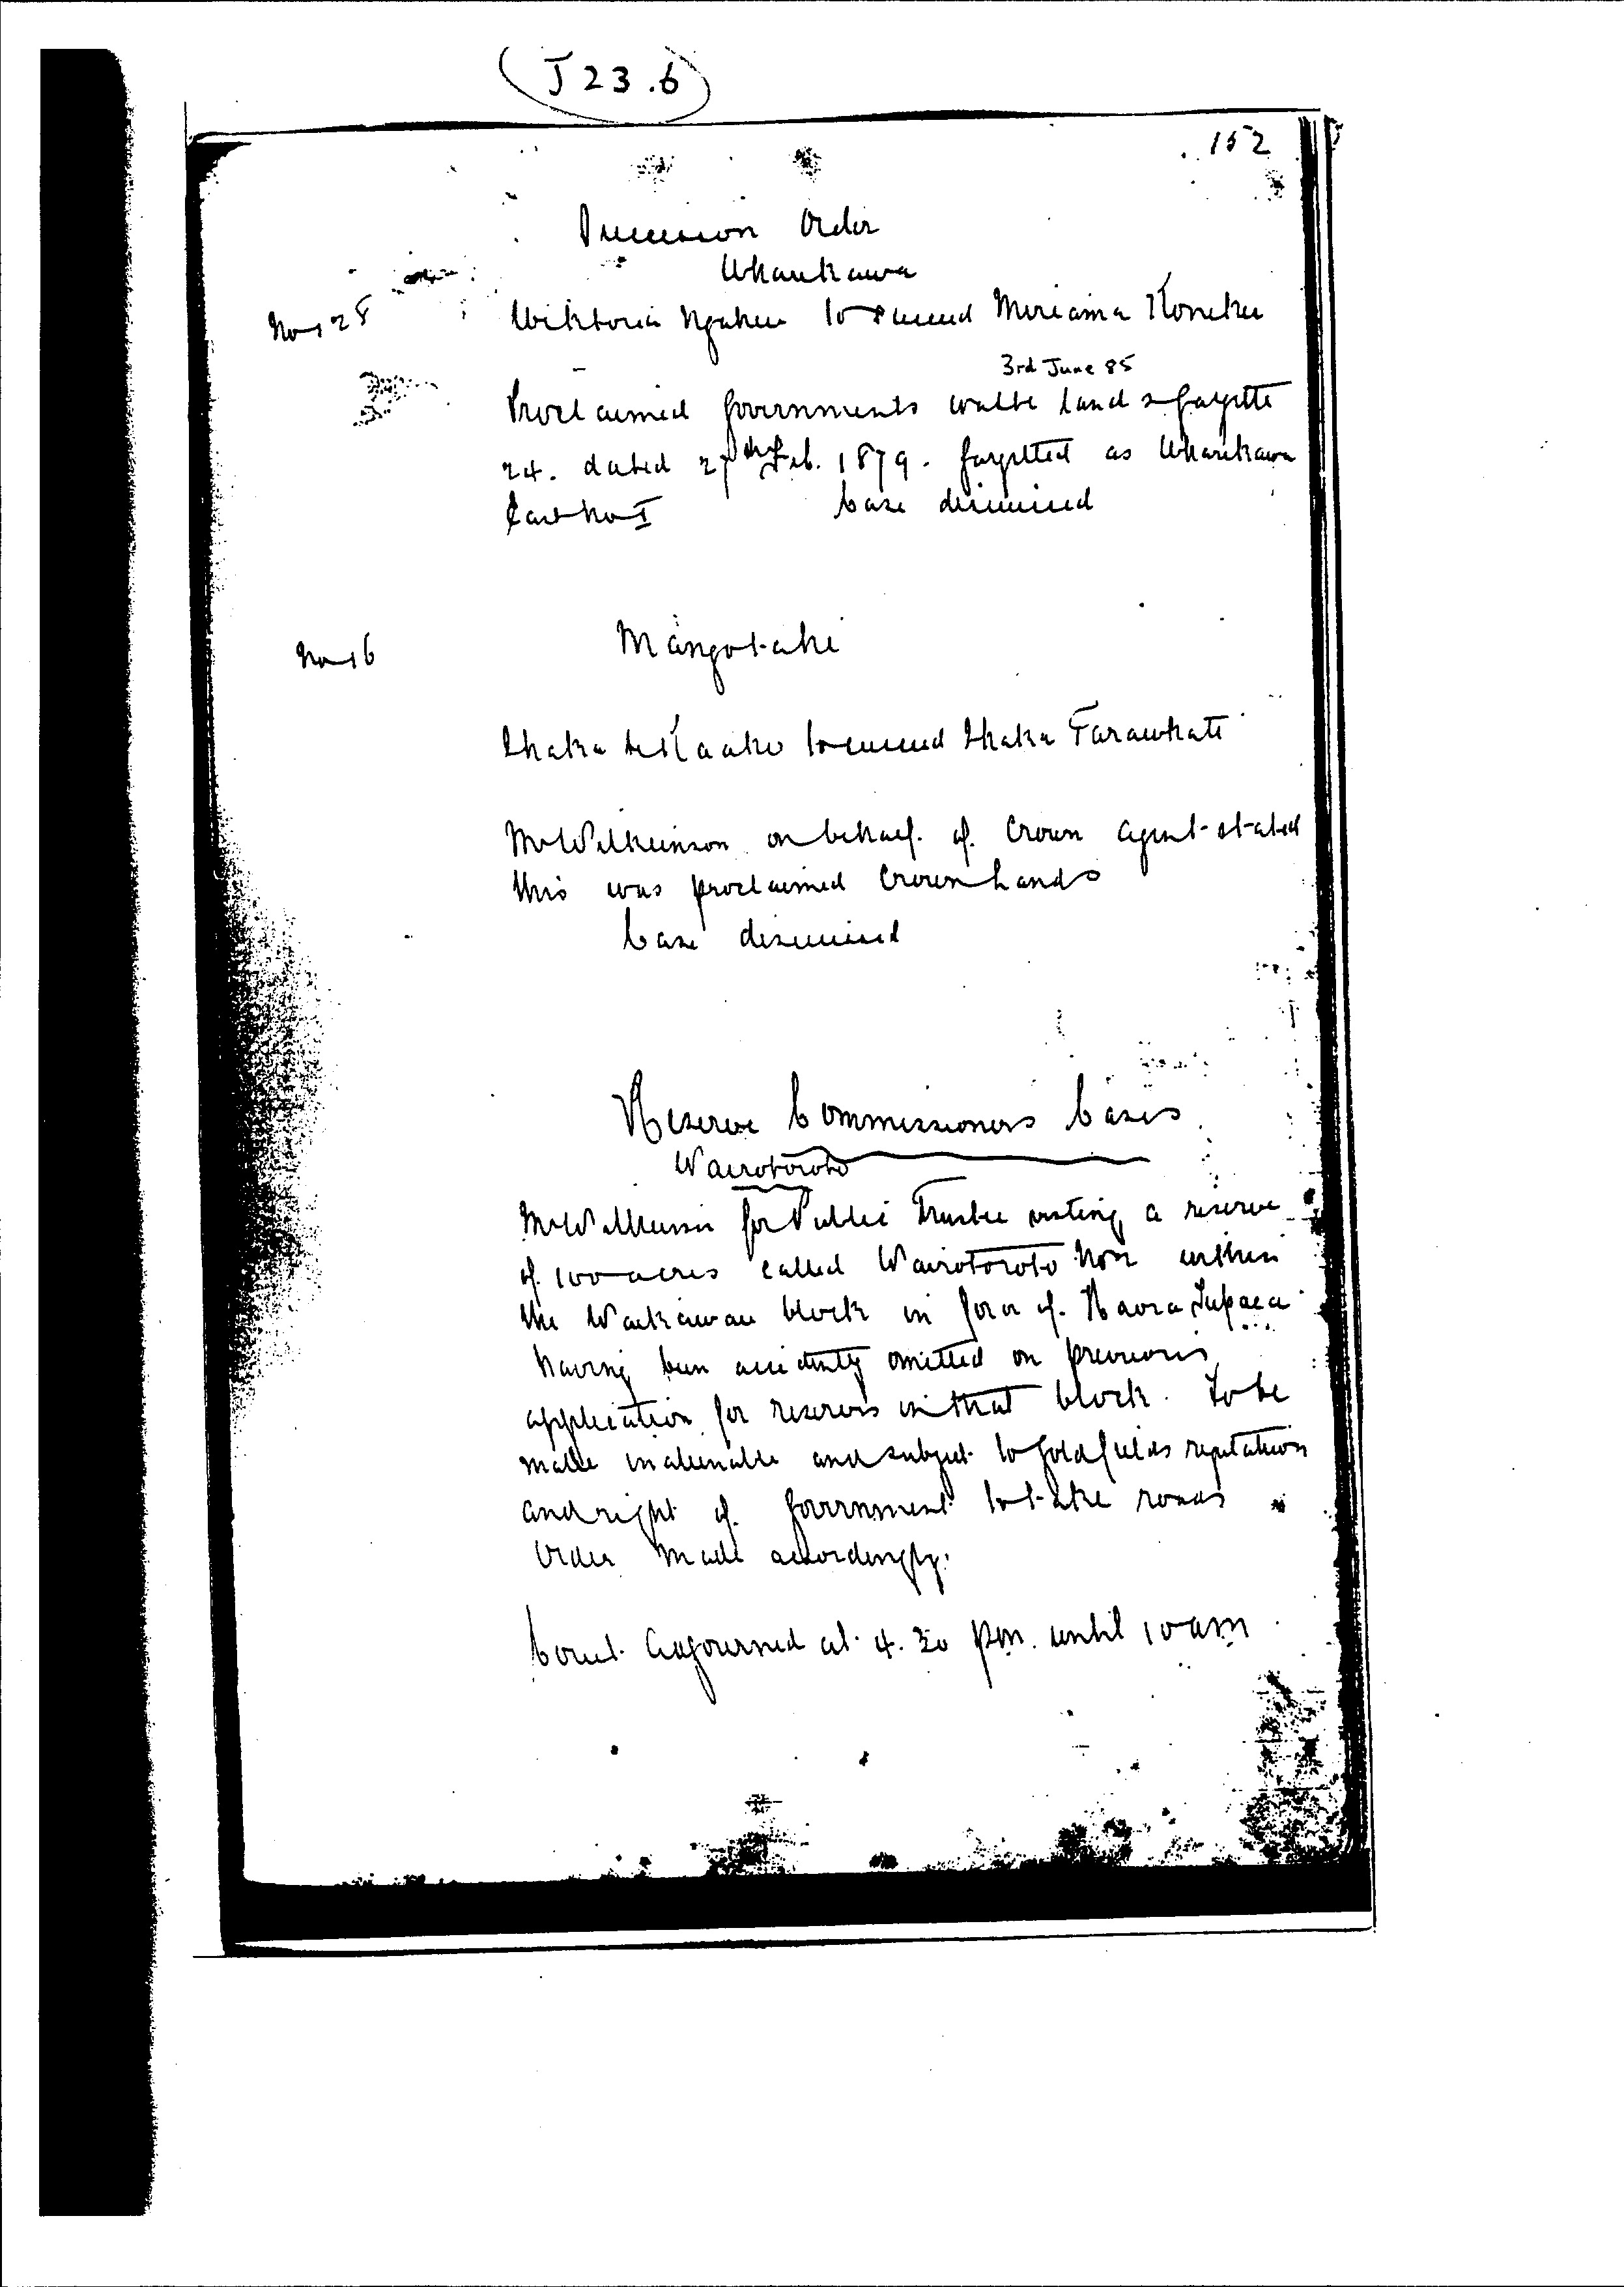 J 23.6
152
Succession Order
Wharekawa
No 128 Wiktoria Ngahue to succeed Meriama Koneke
3rd June 85
Proclaimed Governments waste lands Gazette
24. dated 27th Feb. 1879. Gazetted as Wharekawa
East No I Case dismissed
No 16 Mangotahi
Ihaka to succeed Ihaka Tarawhati
Mr Wilkinson on behalf of Crown Agent stated
this was proclaimed Crown Lands
Case dismissed
Reserve Commissioners Cases
Wairotoroto
Mr Wilkinson for Public Trustee vesting a reserve
of 100 acres called Wairotoroto No 2 within
the Waikawau block in favor of Haora Tupaea
having been accidently omitted on previous
application for reserves in that block. To be
made inalienable and subject to Goldfields regulation
and right of Government to take roads
Order made accordingly.
Court Adjourned at 4.30 pm. until 10 am